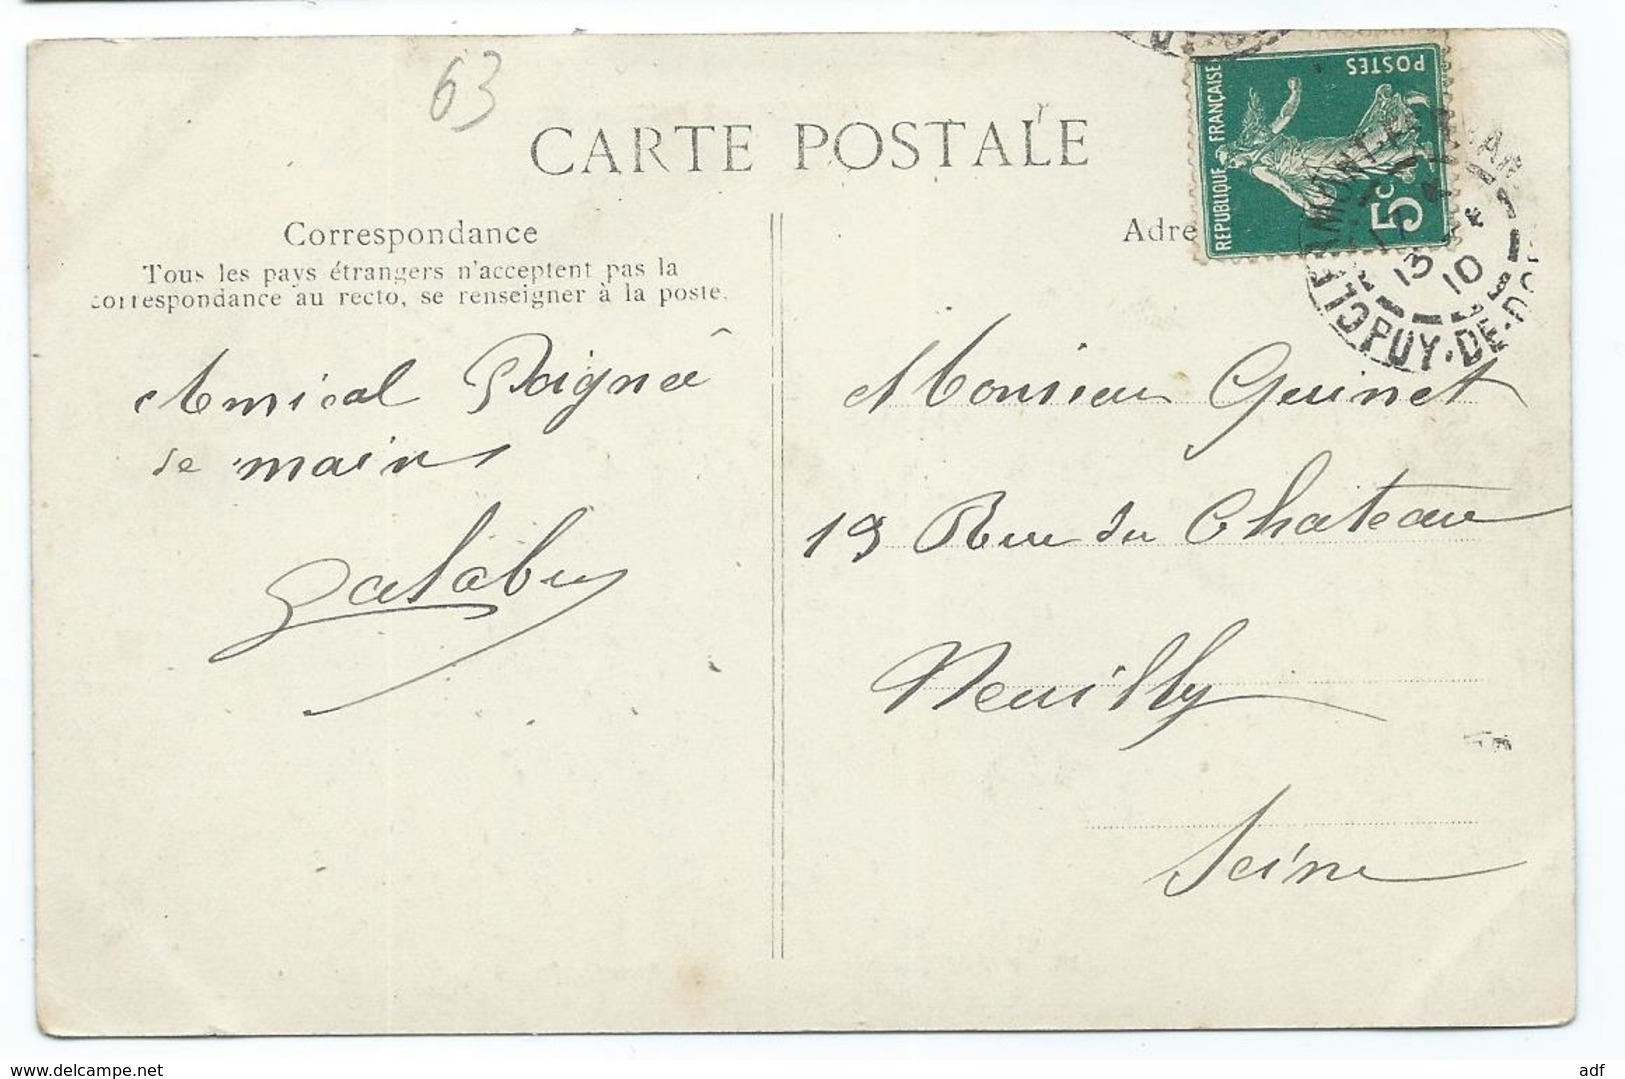 63
CARTE POSTALE
POSTES
REPUBLIQUE FRANÇAISE
5c
13
10
PUY-DE-DO
Correspondance
Tous les pays étrangers n'acceptent pas la
correspondance au recto, se renseigner à la poste.
Adre
Amical Poignée
de mains
Monsieur Guinet
19 Rue du Chateau
Neuilly
Seine
www.delcampe.net
adf